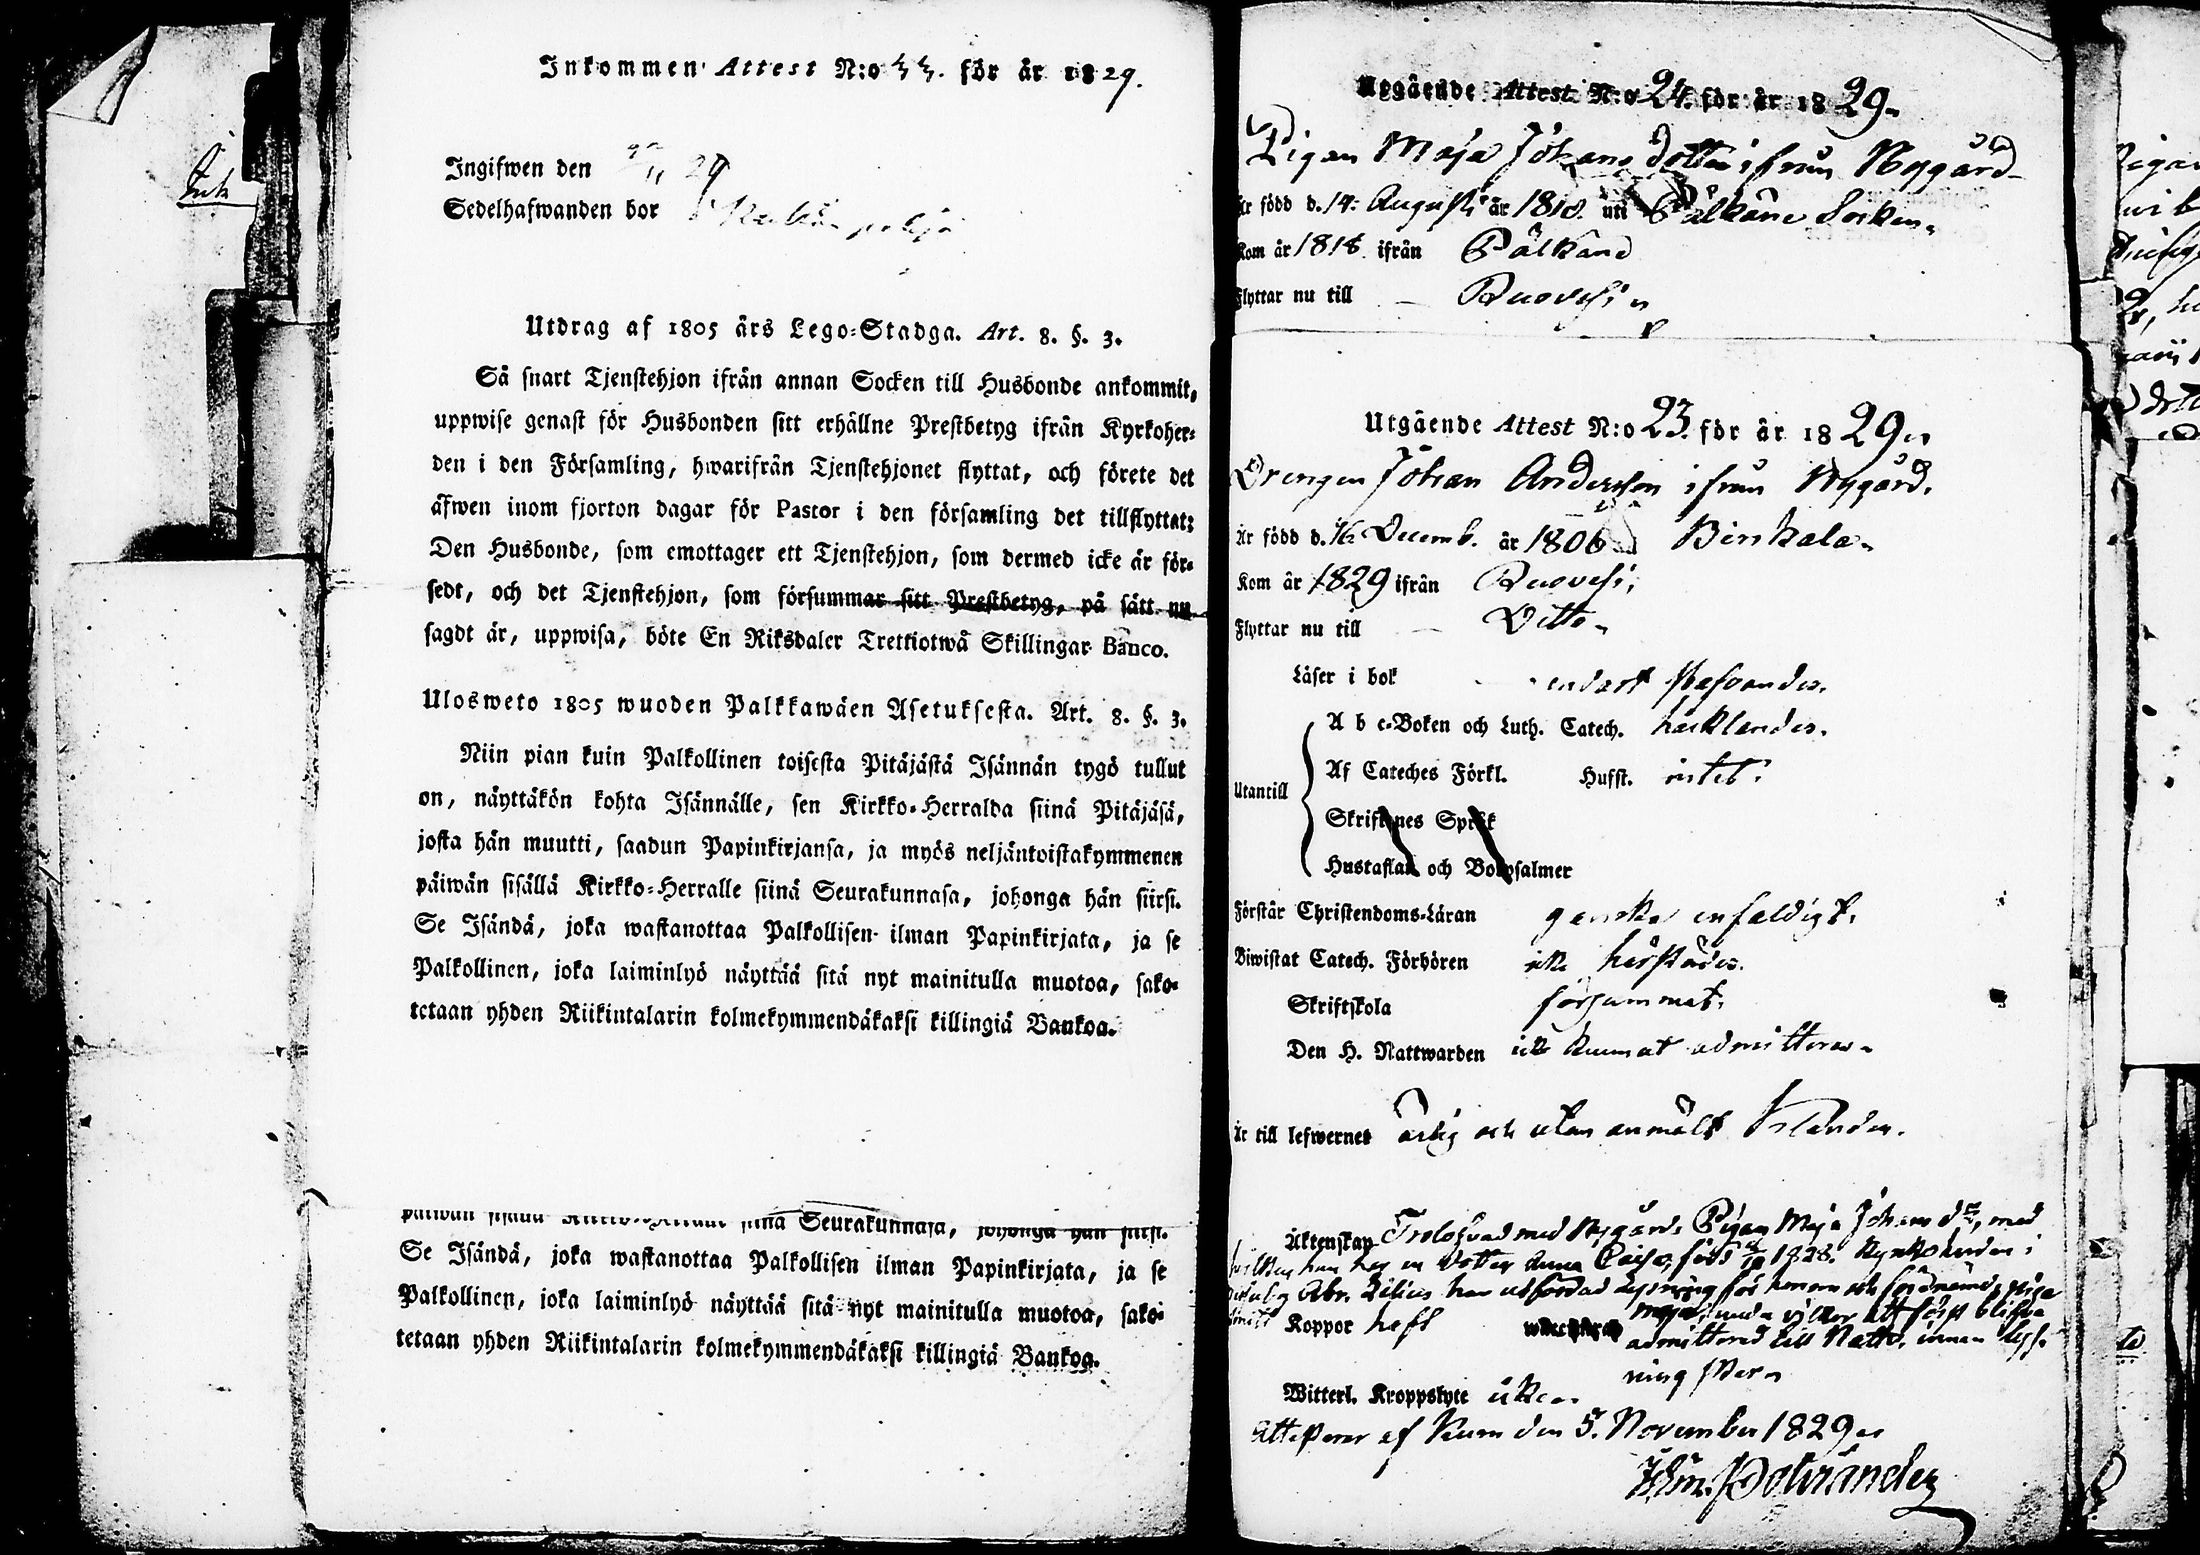 Ink
Inkommen Attest N:o 44. för år 1829.
Ingifwen den 29
Sedelhafwanden bor
Utdrag af 1805 års Lego=Stadga. Art. 8. §. 3.
Så snart Tjenstehjon ifrån annan Socken till Husbonde ankommit,
uppwise genast för Husbonden sitt erhållne Prestbetyg ifrån Kyrkoher=
den i den Församling, hwarifrån Tjenstehjonet flyttat, och förete det
äfwen inom fjorton dagar för Pastor i den församling det tillflyttat:
Den Husbonde, som emottager ett Tjenstehjon, som dermed icke är för=
sedt, och det Tjenstehjon, som försummar sitt Prestbetyg, på sätt nu
sagdt är, uppwisa, böte En Riksdaler Trettiotwå Skillingar Banco.
Ulosweto 1805 wuoden Palkkawäen Asetuksesta. Art. 8. §. 3.
Niin pian kuin Palkollinen toisesta Pitäjästä Isännän tygö tullut
on, näyttäkön kohta Isännälle, sen Kirkko=Herralda siinä Pitäjäsä,
josta hän muutti, saadun Papinkirjansa, ja myös neljäntoistakymmenen
päiwän sisällä Kirkko=Herralle siinä Seurakunnasa, johonga hän siirsi.
Se Isändä, joka wastanottaa Palkollisen ilman Papinkirjata, ja se
Palkollinen, joka laiminlyö näyttää sitä nyt mainitulla muotoa, sako=
tetaan yhden Riikintalarin kolmekymmendäkaksi killingiä Bankoa.
päiwän sisällä Kirkko=Herralle siinä Seurakunnasa, johonga hän siirsi.
Se Isändä, joka wastanottaa Palkollisen ilman Papinkirjata, ja se
Palkollinen, joka laiminlyö näyttää sitä nyt mainitulla muotoa, sako=
tetaan yhden Riikintalarin kolmekymmendäkaksi killingiä Bankoa.
Utgående Attest N:o 24. för år 1829.
Pigan Maja Johans dotter ifrån Nygård
Är född d. 14. Augusti år 1818. uti Pälkäne Socken.
Kom år 1818 ifrån Pälkäne
Flyttar nu till Ruovesi
Utgående Attest N:o 23. för år 1829.
Drengen Johan Andersson ifrån Nygård.
Är född d. 16 Decemb. år 1806 Birkala.
Kom år 1829 ifrån Ruovesi,
Flyttar nu till Ditto.
Läser i bok endast stafvandes.
Utantill
A b c=Boken och Luth. Catech. hacklandes.
Af Cateches Förkl. Hufst. intet.
Skriftenes Språk
Hustaflan och Botpsalmer
Förstår Christendoms=Läran ganska enfaldigt.
Biwistat Catech. Förhören icke härstädes.
Skriftskola försummat.
Den H. Nattwarden icke kunnat admitteras.
Är till lefwernet ärlig och utan anmält klander.
Äktenskap Trolofvad med Nygårds Pigan Maja Johans dr, med
hvilken han har en dotter Anna Caisa, född 1828. Kyrkoherden i
Abr. Lilius har utfärdad lysning för honom och förenämnd piga
Maja, med vilkor att först blifva
Koppor haft
admitterad till Nattv. innan lys-
ning sker.
Witterl. Kroppslyte icke.
Attesterar af Kum den 5. November 1829.